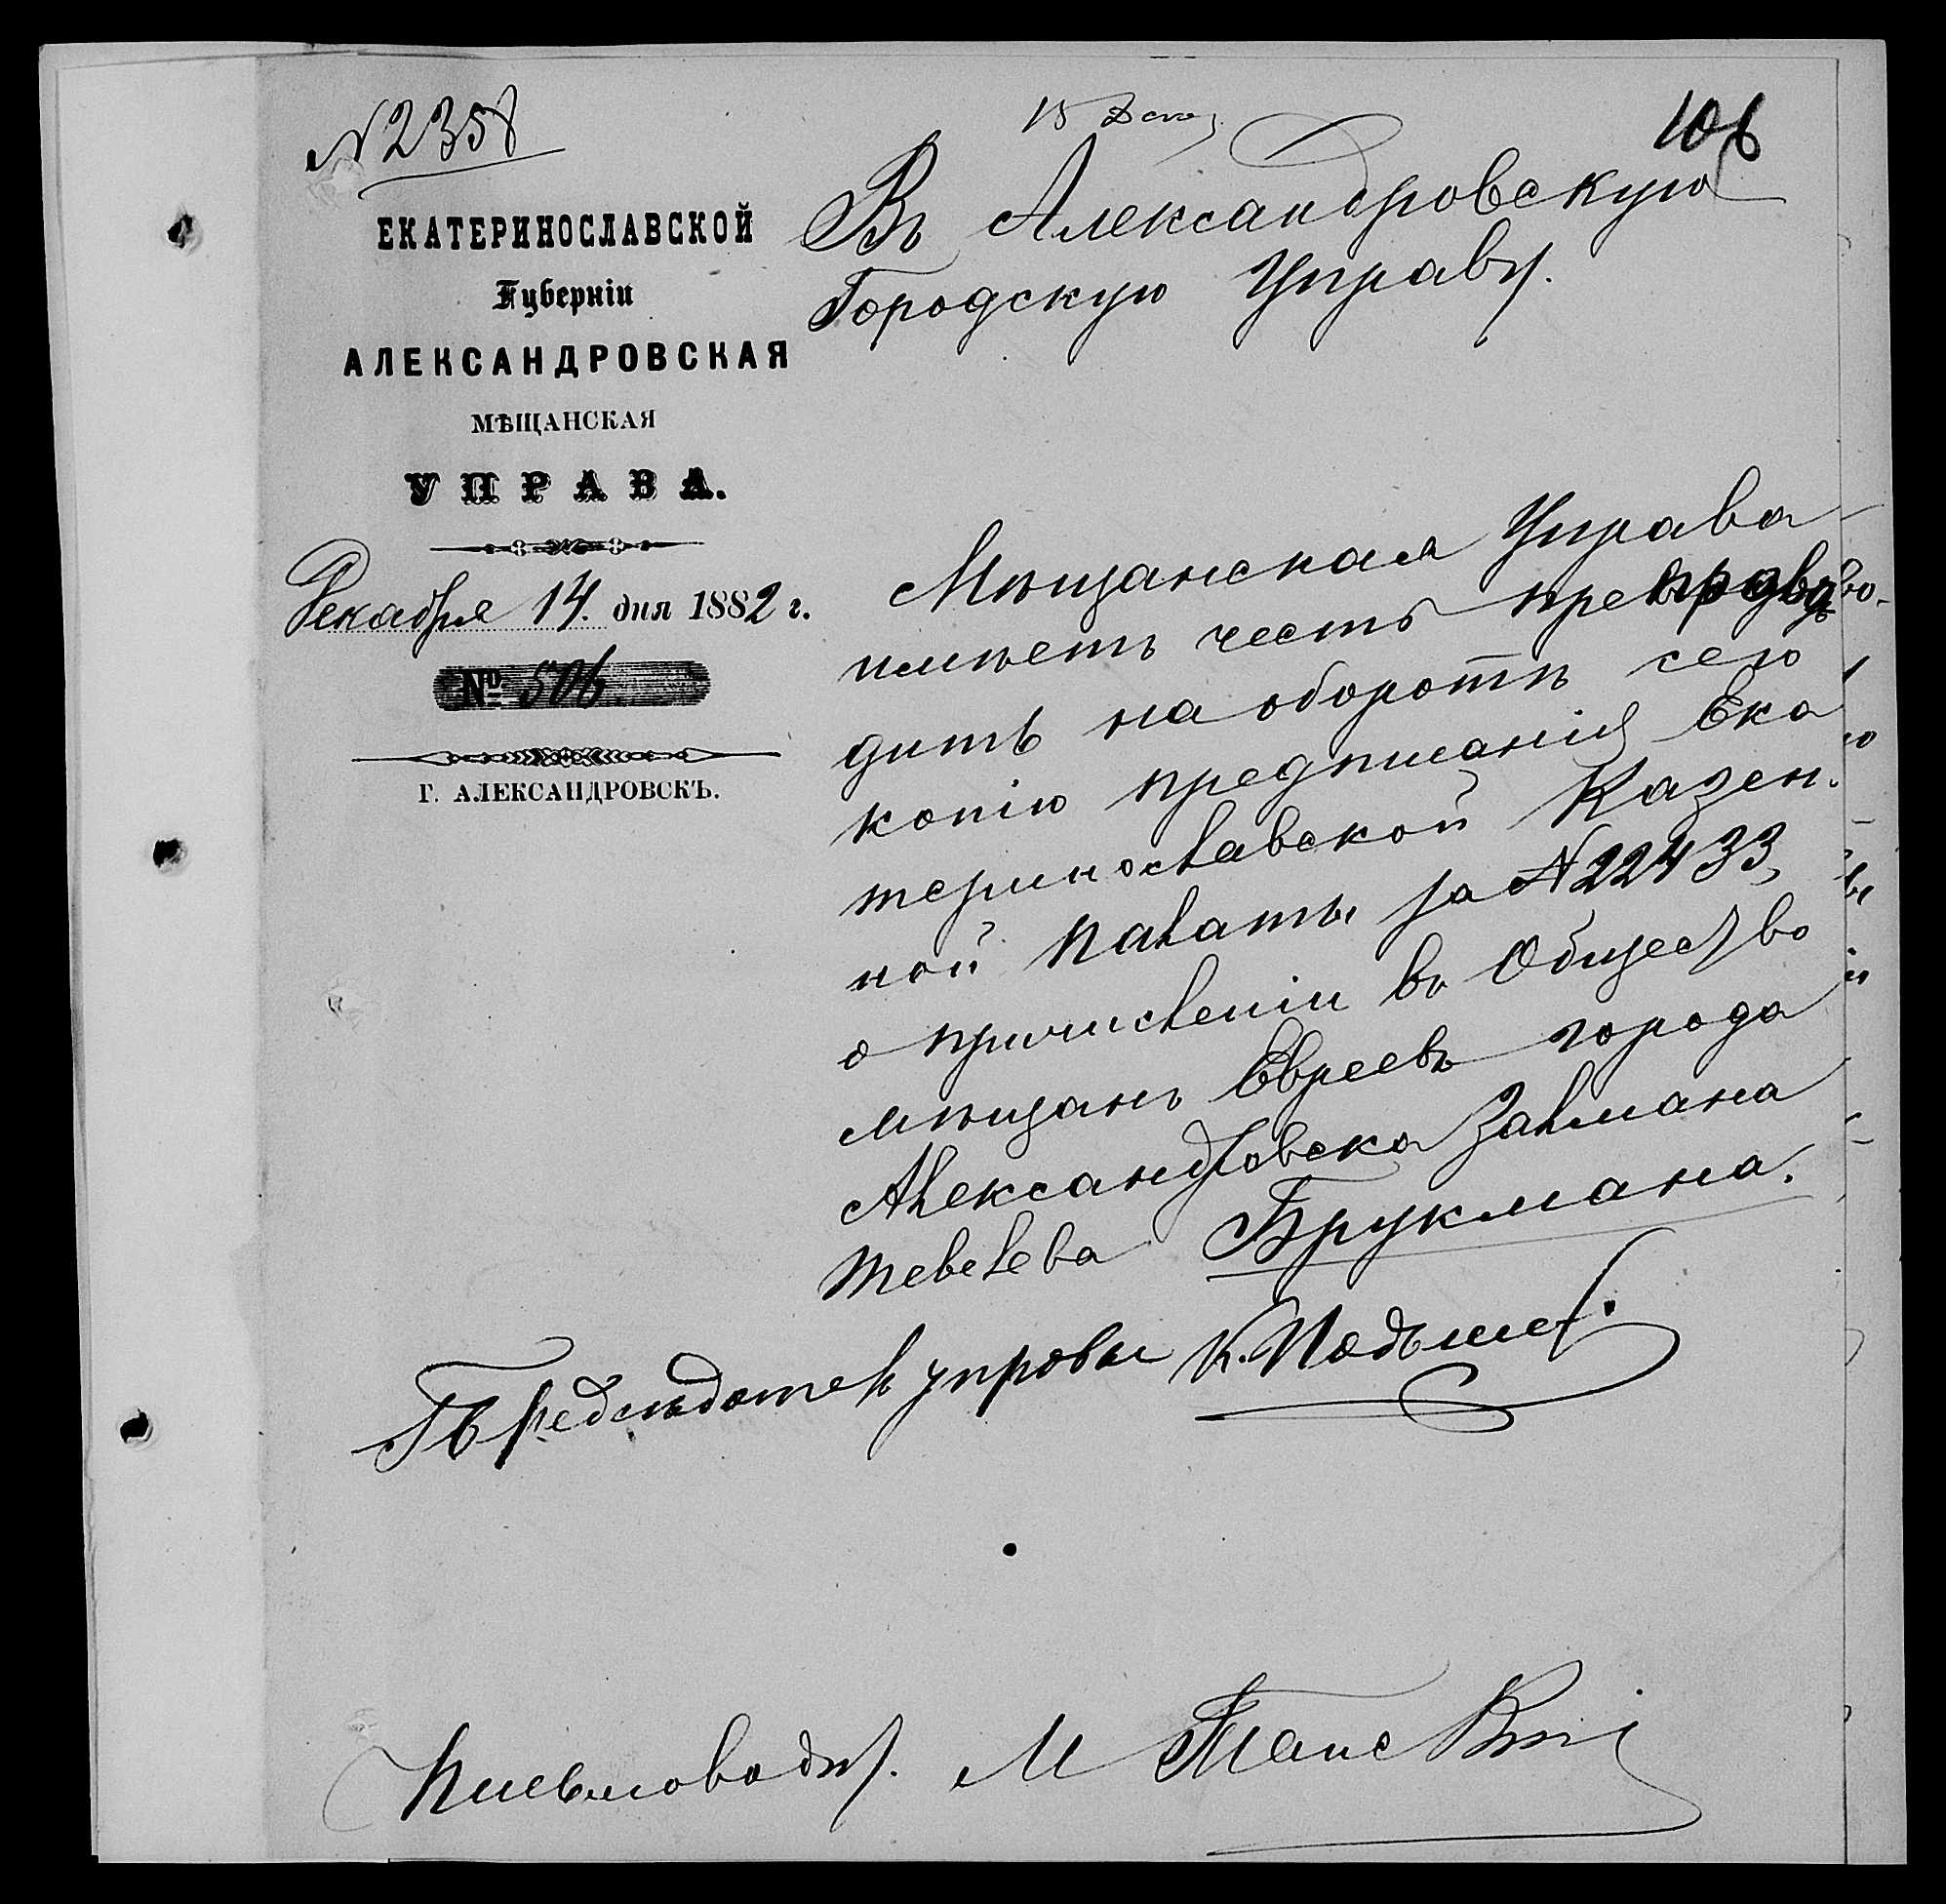 N 2358
15 Дек.
106
ЕКАТЕРИНОСЛАВСКОЙ
Губерніи
АЛЕКСАНДРОВСКАЯ
МѢЩАНСКАЯ
УПРАВА.
Декабря 14. дня 1882 г.
№ 506
Г. АЛЕКСАНДРОВСКЪ.
Въ Александровскую
Городскую Управу.
Мѣщанская Управа
имѣетъ честь препрово-
дить на оборотѣ сего
копію предписанія Ека
теринославской Казен-
ной палаты за N 22433,
о причисленіи въ Общество
мѣщанъ Евреевъ города
Александровска Залмана
Тевелева Брукмана.
Предсѣдатель управы К.
Письмоводит. М